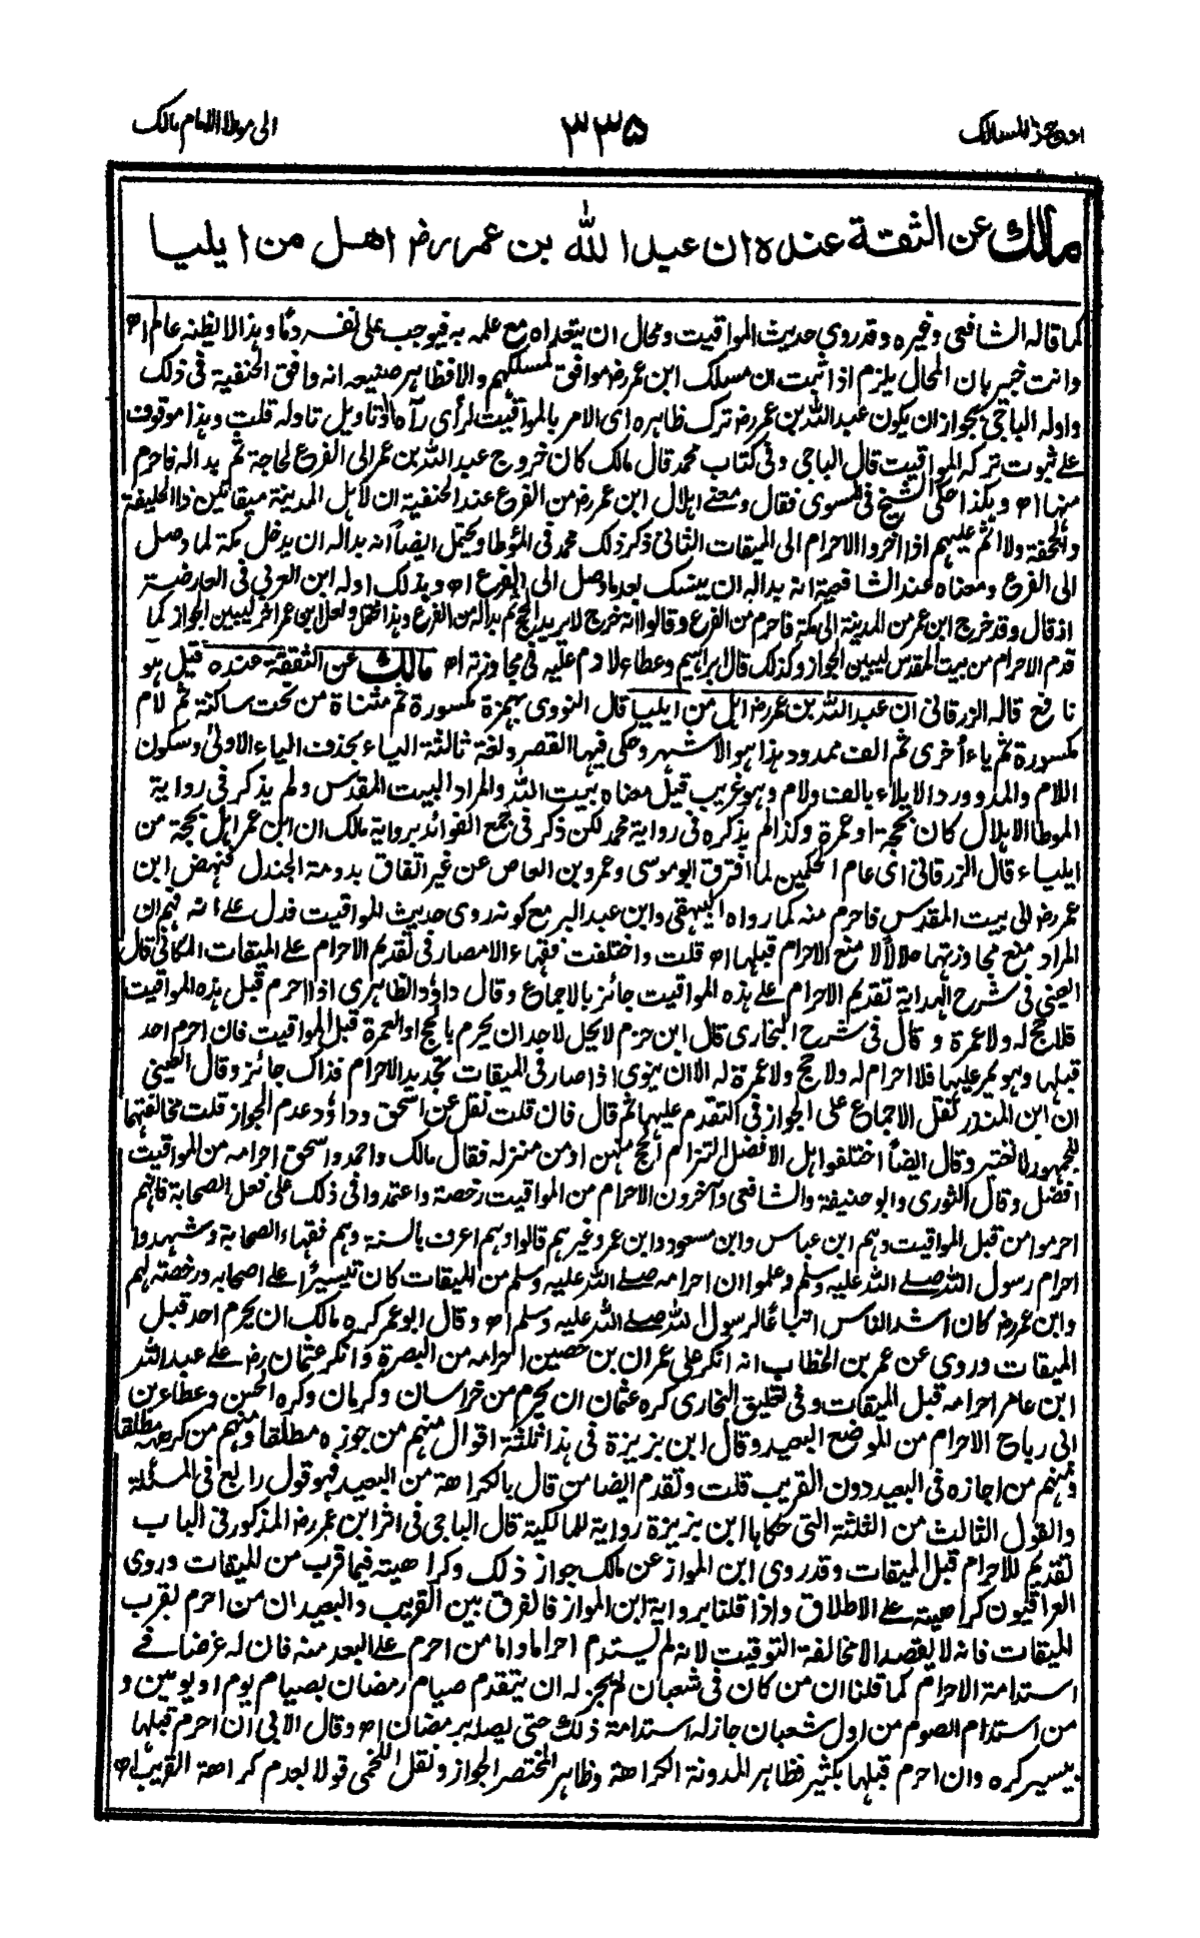 اوجز المسالك
٣٣٥
الى موطا الامام مالك
مالك عن الثقة عنده ان عبد الله بن عمر رض اهل من ايليا
كما قاله الشافعى وغيره وقد روى حديث المواقيت ومحال ان يتعداه مع علمه به فيوجب على نفسه دمًا وهذا لا يظنه عالم اه
وانت خبير بان المحال يلزم اذا ثبت ان مسلك ابن عمر رض موافق لمسلكهم والا فظاهر صنيعه انه وافق الحنفية فى ذلك
واوله الباجى بجواز ان يكون عبد الله بن عمر رض ترك ظاهره اى الامر بالمواقيت لرأى رآه او تاويل تاوله قلت وهذا موقوف
على ثبوت تركه المواقيت قال الباجى وفى كتاب محمد قال مالك كان خروج عبد الله بن عمر الى الفرع لحاجة ثم بدا له فاحرم
منها اه وهكذا حكى الشيخ فى المسوى فقال ومعنى اهلال ابن عمر رض من الفرع عند الحنفية ان لاهل المدينة ميقاتين ذا الحليفة
والجحفة ولا اثم عليهم اذا اخروا الاحرام الى الميقات الثانى ذكر ذلك محمد فى المؤطا ويحتمل ايضاً انه بدا له ان يدخل مكة لما وصل
الى الفرع ومعناه عند الشافعية انه بدا له ان ينسك بعد ما وصل الى الفرع اه وبذلك اوله ابن العربى فى العارضة
اذ قال وقد خرج ابن عمر من المدينة الى مكة فاحرم من الفرع وقالوا انه خرج لا يريد الحج ثم بدا له من الفرع وهذا محتمل ولعل ابن عمر اخر ليبين الجواز كما
قدم الاحرام من بيت المقدس ليبين الجواز وكذلك قال ابراهيم وعطاء لا دم عليه فى مجاوزته اه مالك عن الثقة عنده قيل هو
نافع قاله الزرقانى ان عبد الله بن عمر رض اهل من ايليا قال النووى بهمزة مكسورة ثم مثناة من تحت ساكنة ثم لام
مكسورة ثم ياء أخرى ثم الف ممدود هذا هو الاشهر وحكى فيها القصر ولغة ثالثة الياء بحذف الياء الاولى وسكون
اللام والمد وورد الايلاء بالف ولام وهو غريب قيل معناه بيت الله والمراد البيت المقدس ولم يذكر فى رواية
الموطا الاهلال كان بحجة او عمرة وكذا لم يذكره فى رواية محمد لكن ذكر فى جمع الفوائد برواية مالك ان ابن عمر اهل بحجة من
ايلياء قال الزرقانى اى عام الحكمين لما افترق ابو موسى وعمرو بن العاص عن غير اتفاق بدومة الجندل فنهض ابن
عمر رض الى بيت المقدس فاحرم منه كما رواه البيهقى وابن عبد البر مع كونه روى حديث المواقيت فدل على انه فهم ان
المراد منع مجاوزتها حلالا لا منع الاحرام قبلها اه قلت واختلفت فقهاء الامصار فى تقديم الاحرام على الميقات المكانى قال
العينى فى شرح الهداية تقديم الاحرام على هذه المواقيت جائز بالاجماع وقال داؤد الظاهرى اذا احرم قبل هذه المواقيت
فلا حج له ولا عمرة وقال فى شرح البخارى قال ابن حزم لا يحل لاحد ان يحرم بالحج او العمرة قبل المواقيت فان احرم احد
قبلها وهو يمر عليها فلا احرام له ولا حج ولا عمرة له الا ان ينوى اذا صار فى الميقات تجديد الاحرام فذاك جائز وقال العينى
ان ابن المنذر نقل الاجماع على الجواز فى التقدم عليها ثم قال فان قلت نقل عن اسحق وداؤد عدم الجواز قلت مخالفتهما
للجمهور لا تعتبر وقال ايضاً اختلفوا هل الافضل التزام الحج منهن او من منزله فقال مالك واحمد واسحق احرامه من المواقيت
افضل وقال الثورى وابو حنيفة والشافعى وآخرون الاحرام من المواقيت رخصة واعتمدوا فى ذلك على فعل الصحابة فانهم
احرموا من قبل المواقيت وهم ابن عباس وابن مسعود وابن عمر وغيرهم قالوا وهم اعرف بالسنة وهم فقهاء الصحابة وشهدوا
احرام رسول الله صلى الله عليه وسلم وعلموا ان احرامه صلى الله عليه وسلم من الميقات كان تيسيرًا على اصحابه ورخصة لهم
وابن عمر رض كان اشد الناس اتباعًا لرسول الله صلى الله عليه وسلم اه وقال ابو عمر كره مالك ان يحرم احد قبل
الميقات وروى عن عمر بن الخطاب انه انكر على عمران بن حصين احرامه من البصرة وانكر عثمان رض على عبد الله
ابن عامر احرامه قبل الميقات وفى تعليق البخارى كره عثمان ان يحرم من خراسان وكرمان وكره الحسن وعطاء بن
ابى رباح الاحرام من الموضع البعيد وقال ابن بزيزة فى هذا ثلثة اقوال منهم من جوزه مطلقا ومنهم من كرهه مطلقا
ومنهم من اجازه فى البعيد دون القريب قلت وتقدم ايضا من قال بالكراهة من البعيد فهو قول رابع فى المسئلة
والقول الثالث من الثلثة التى حكاها ابن بزيزة رواية للمالكية قال الباجى فى اثر ابن عمر رض المذكور فى الباب
تقديم للاحرام قبل الميقات وقد روى ابن المواز عن مالك جواز ذلك وكراهيته فيما قرب من الميقات وروى
العراقيون كراهيته على الاطلاق واذا قلنا برواية ابن المواز فالفرق بين القريب والبعيد ان من احرم بقرب
الميقات فانه لا يقصد الا مخالفة التوقيت لانه لم يستدم احراما واما من احرم على البعد منه فان له غرضا فى
استدامة الاحرام كما قلنا ان من كان فى شعبان لم يجز له ان يتقدم صيام رمضان بصيام يوم او يومين و
من استدام الصوم من اول شعبان جاز له استدامة ذلك حتى يصله برمضان اه وقال الابى ان احرم قبلها
بيسير كره وان احرم قبلها بكثير فظاهر المدونة الكراهة وظاهر المختصر الجواز ونقل اللخمى قولا بعدم كراهة القريب اه